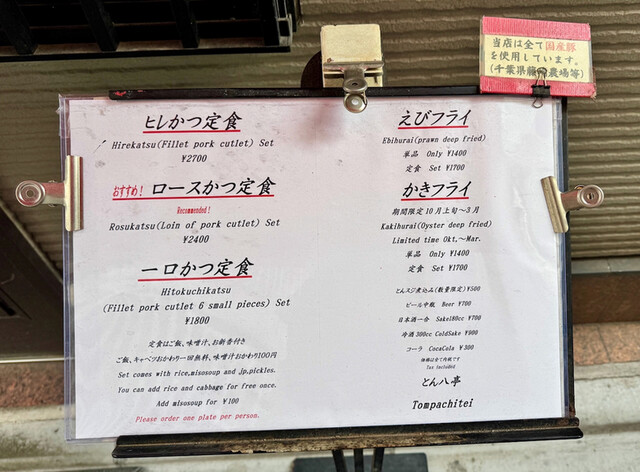 当店は全て国産豚
を使用しています。
(千葉県 農場等)
ヒレかつ定食
Hirekatsu(Fillet pork cutlet) Set
¥2700
おすすめ! ロースかつ定食
Recommended!
Rosukatsu(Loin of pork cutlet) Set
¥2400
一口かつ定食
Hitokuchikatsu
(Fillet pork cutlet 6 small pieces) Set
¥1800
定食はご飯、味噌汁、お新香付き
ご飯、キャベツおかわり一回無料、味噌汁おかわり100円
Set comes with rice,misosoup and jp,pickles.
You can add rice and cabbage for free once.
Add misosoup for ¥100
Please order one plate per person.
えびフライ
Ebihurai(prawn deep fried)
単品 Only ¥1400
定食 Set ¥1700
かきフライ
期間限定10月上旬~3月
Kakihurai(Oyster deep fried)
Limited time Okt,~Mar.
単品 Only ¥1400
定食 Set ¥1700
とんスジ煮込み(数量限定)¥500
ビール中瓶 Beer ¥700
日本酒一合 Sake180cc ¥700
冷酒 300cc ColdSake ¥900
コーラ CocaCola ¥300
価格は全て内税です
Tax Included
とん八亭
Tompachitei